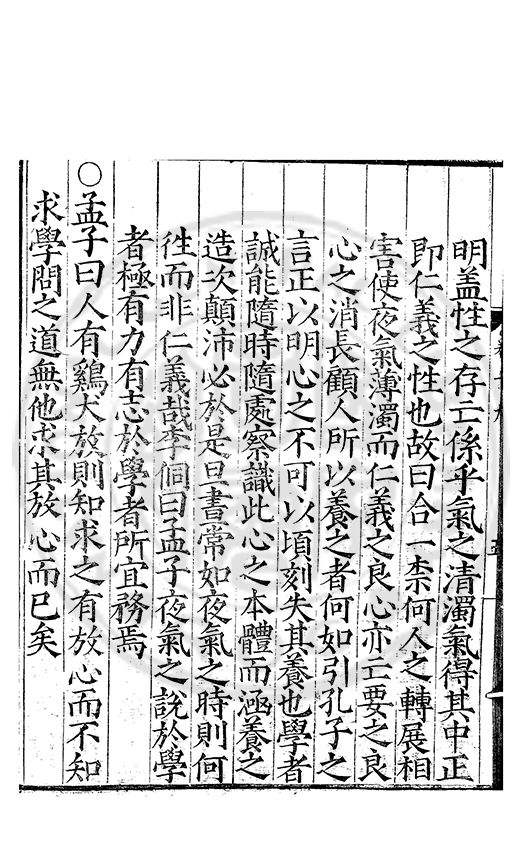 明蓋性之存亡係乎氣之清濁氣得其中正
即仁義之性也故曰合一柰何人之轉展相
害使夜氣薄濁而仁義之良心亦亡要之良
心之消長顧人所以養之者何如引孔子之
言正以明心之不可以頃刻失其養也學者
誠能隨時隨處察識此心之本體而涵養之
造次顛沛必於是旦晝常如夜氣之時則何
徃而非仁義哉李侗曰孟子夜氣之說於學
者極有力有志於學者所宜務焉
○孟子曰人有鷄犬放則知求之有放心而不知
求學問之道無他求其放心而已矣